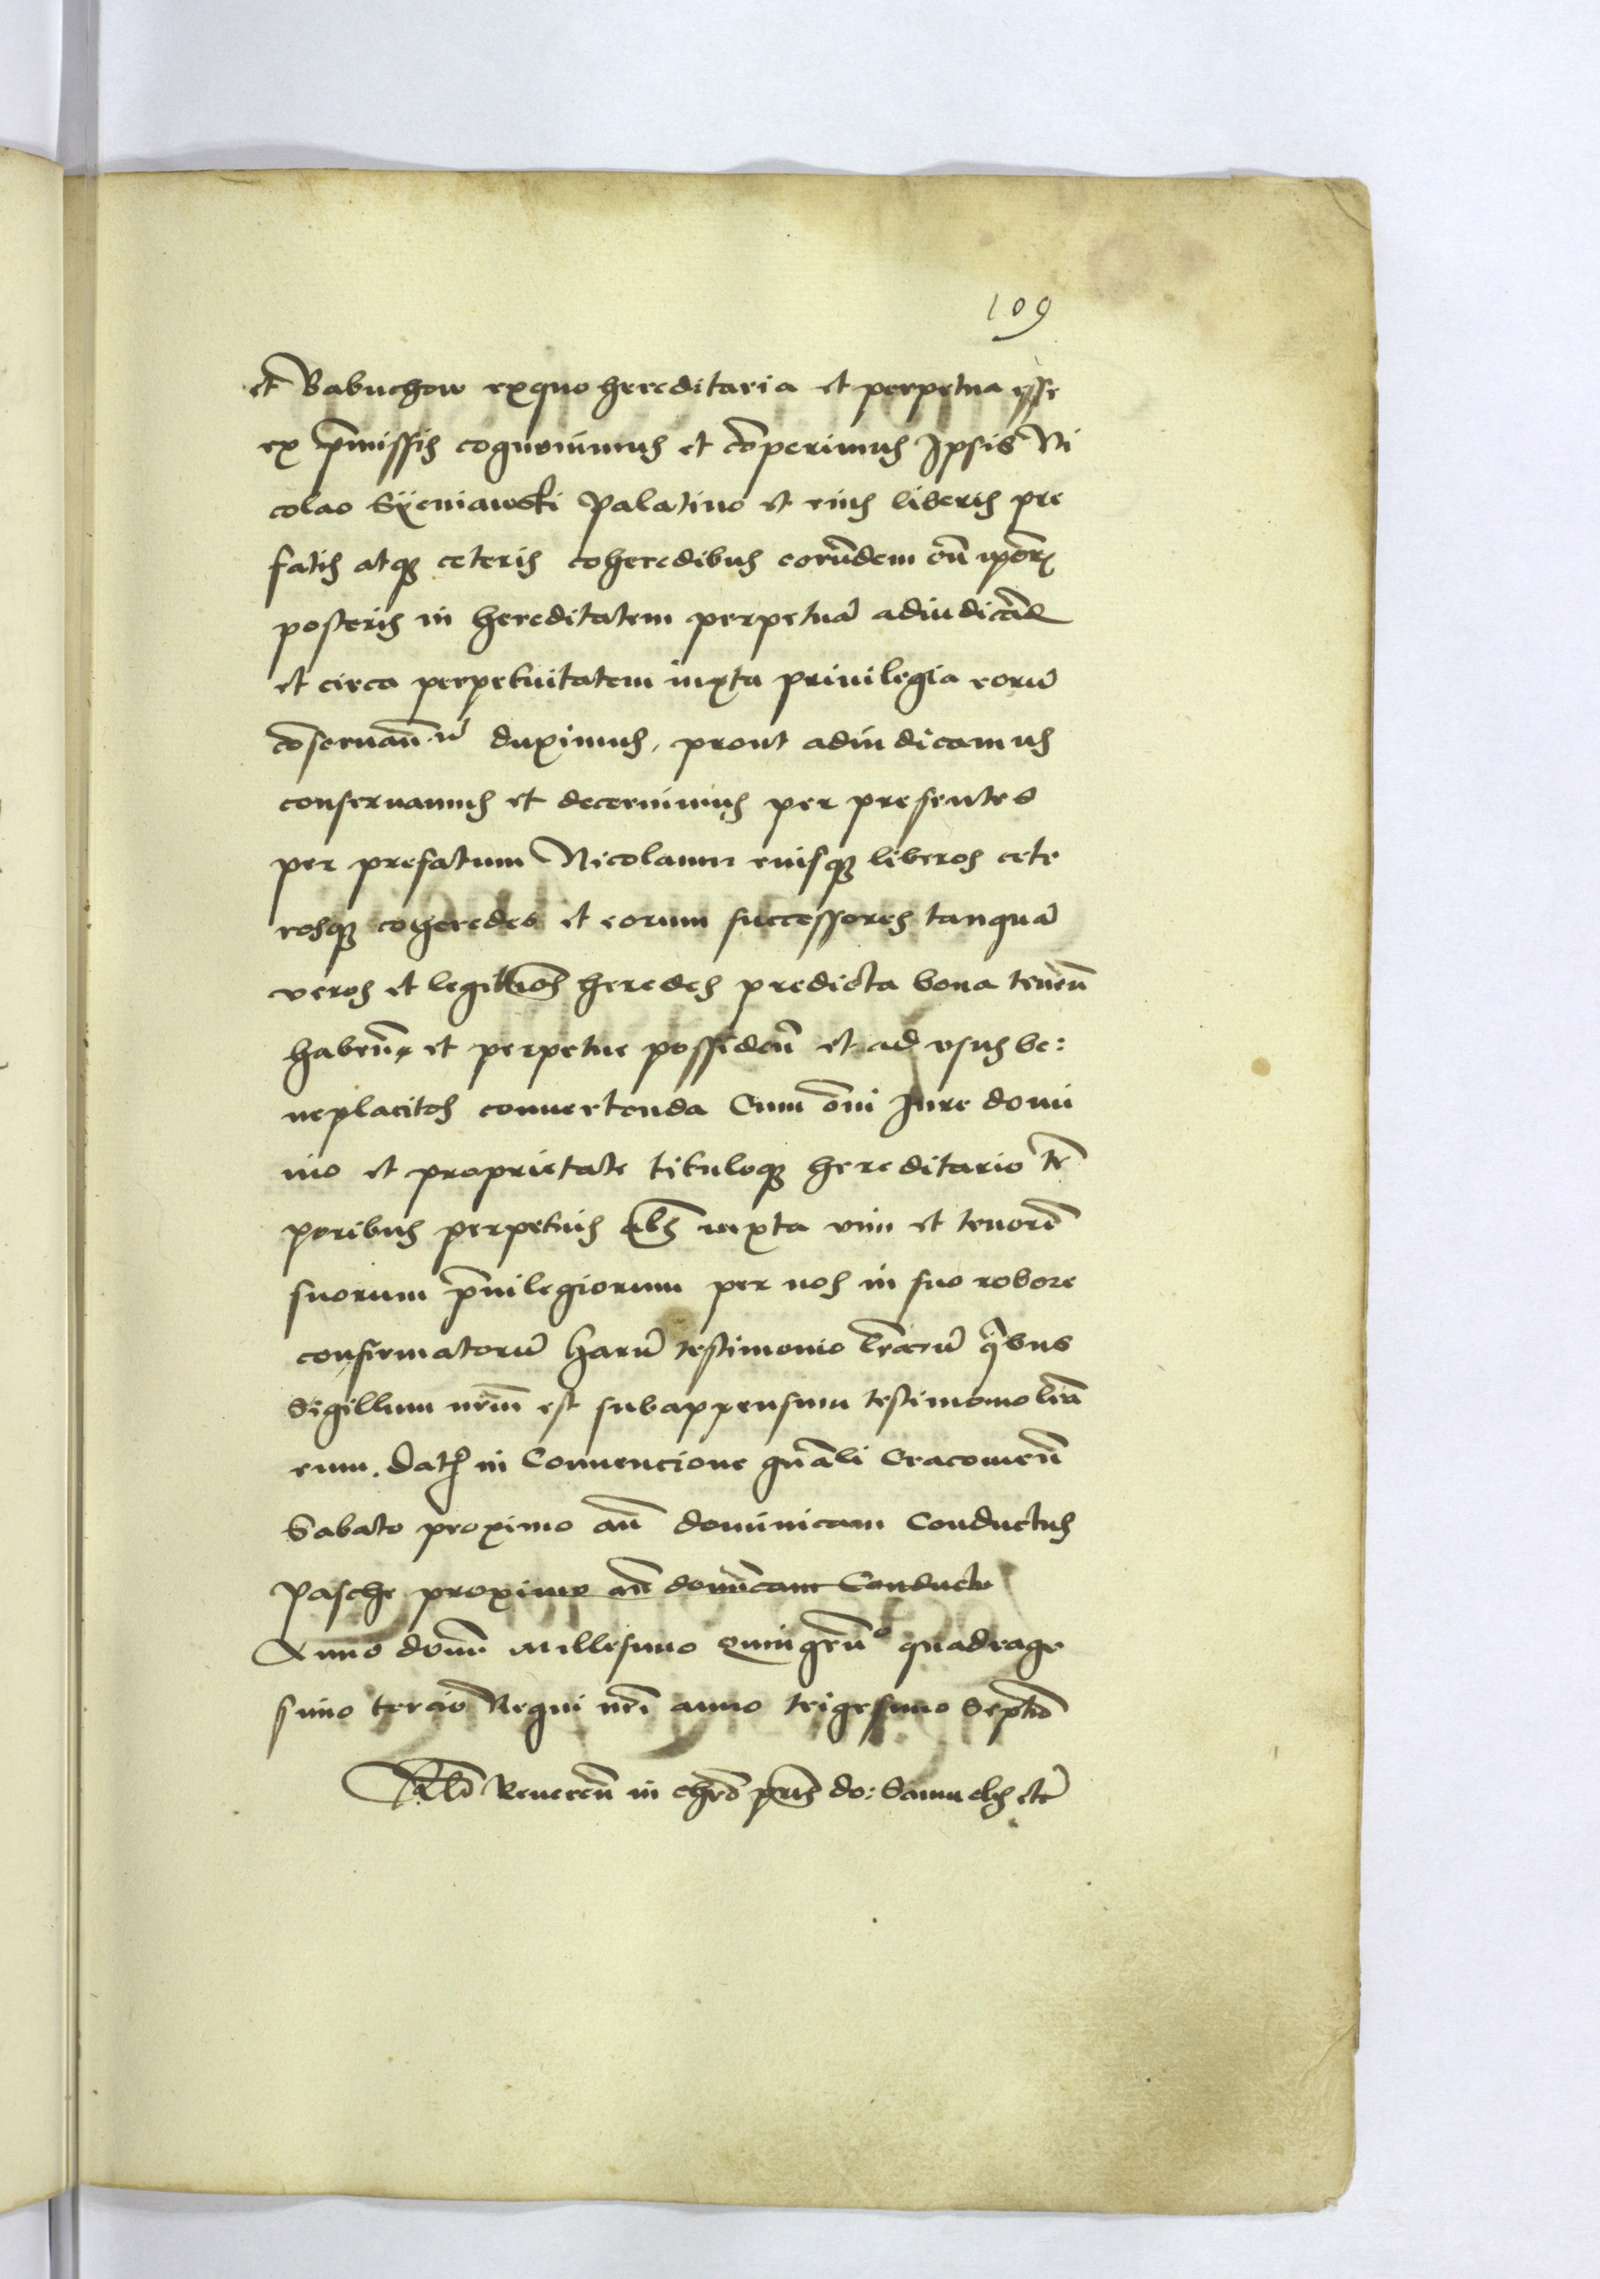 109
et Babuchow exquo hereditaria et perpetua esse
ex p̃missis cognouimus et cõperimus Ipsis Ni
colao Syeniawski Palatino et eius liberis pre
fatis atq3 ceteris coheredibus eorũdem cũ ipõrꝫ
posteris in hereditatem perpetuã adiudicãd
et circa perpetuitatem iuxta priuilegia eorũ
cõseruañ ũ duximus, prout adiudicamus
conseruamus et decernimus per presentes
per prefatum Nicolaum eiusq3 liberos cete
rosq3 coheredes et eorum successores tanquã
veros et legittiõs heredes predicta bona teneñ
habeñ et perpetue possideñ et ad vsus be:
neplacitos conuertenda Cum õni Iure domi
nio et proprietate tituloq3 hereditario tẽ
poribus perpetuis iuxta vim et tenorẽ
suorum p̃uilegiorum per nos in suo robore
confirmatorũ harũ testimonio lr̃arũ q̃bus
Sigillum nr̃m est subappensum testimonio lr̃a
rum. Dat in Conuencione gñali Cracouieñ
Sabato proximo añ dominicam Conductus
Pasche proximo añ dominicam Conductu
Anno domi millesimo Quingeñᵒ quadrage
simo tercio Regni nr̃i anno trigesimo Septiõ
Reuereñ in chr̃o pr̃is do: Samuelis etc̃